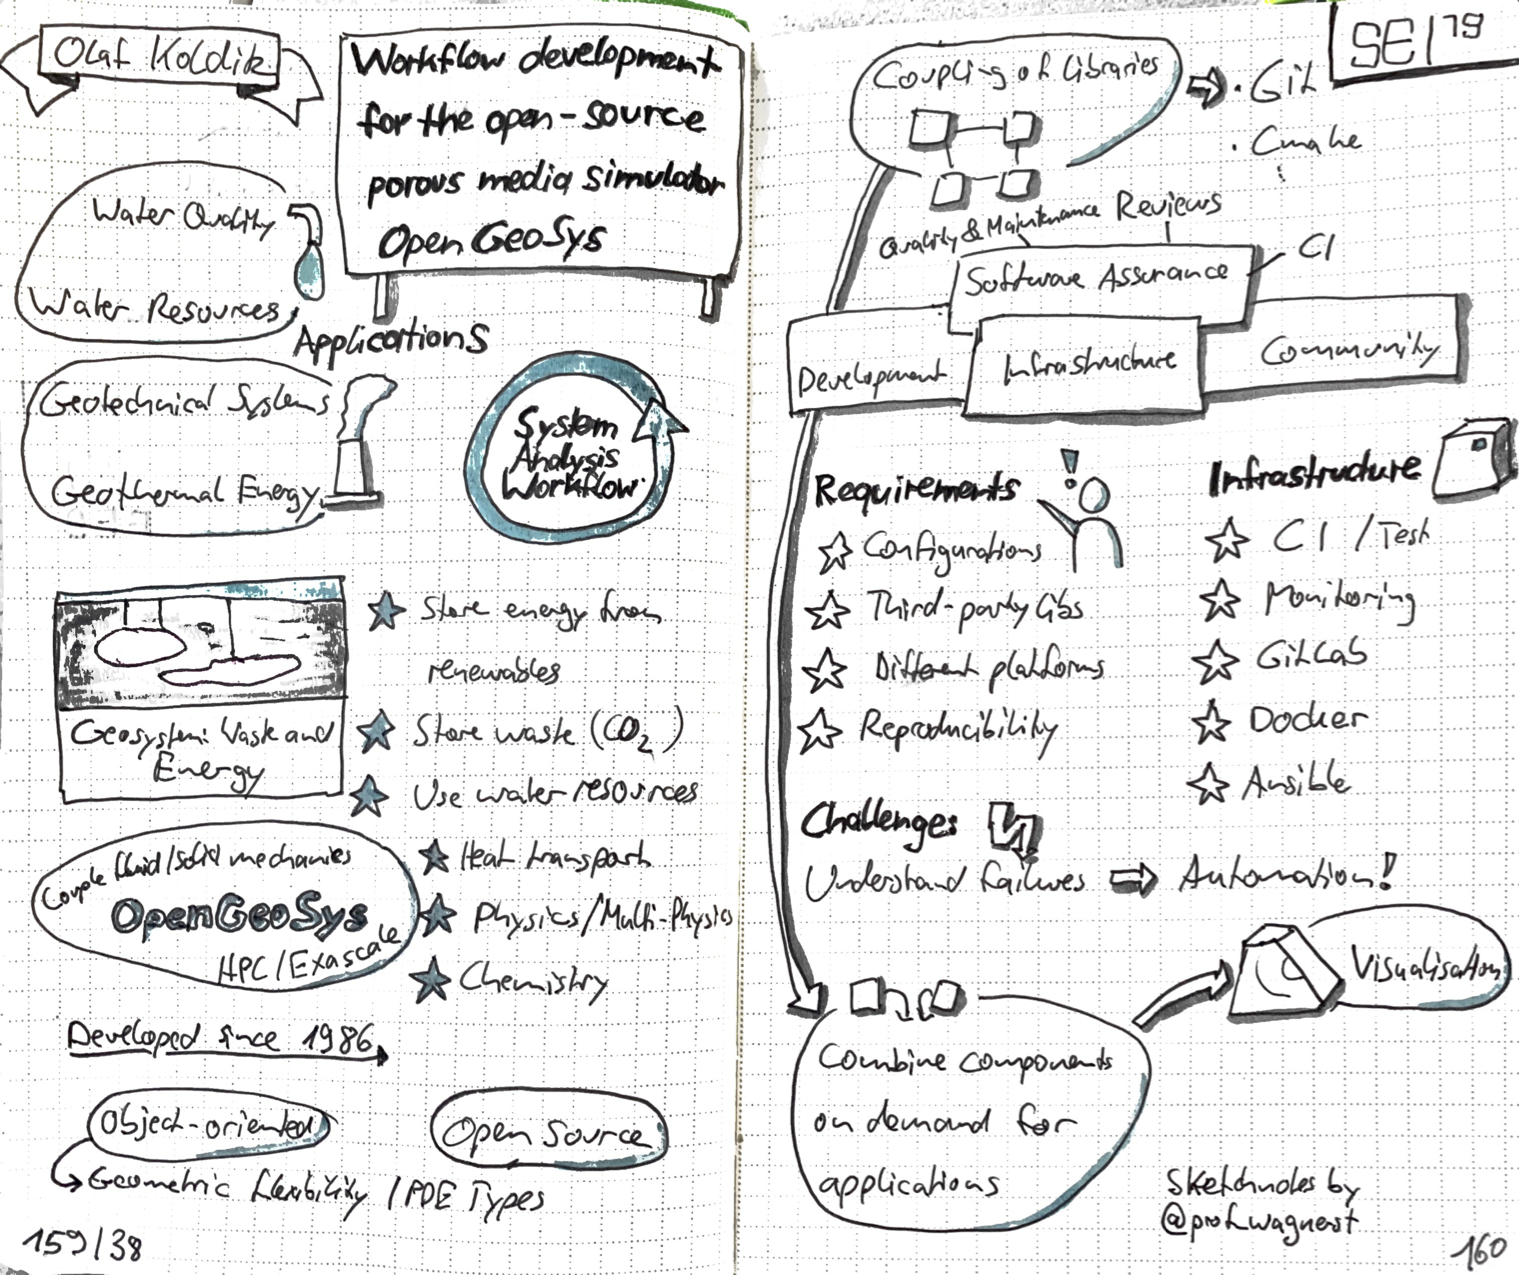 Olaf Kolditz
Workflow development
for the open-source
porous media simulator
OpenGeoSys
Water Quality
Water Resources
Applications
Geotechnical Systems
Geothermal Energy
System
Analysis
Workflow
Geosystem: Waste and
Energy
Store energy from
renewables
Store waste (CO2)
Use water resources
Couple fluid/solid mechanics
OpenGeoSys
HPC/Exascale
Heat transport
Physics/Multi-Physics
Chemistry
Developed since 1986
Object-oriented
Open Source
Geometric flexibility / PDE Types
159/38
SE|19
Coupling of Libraries
· Git
· Cmake
Quality & Maintenance
Reviews
Software Assurance
CI
Development
Infrastructure
Community
Requirements
Configurations
Third-party libs
Different platforms
Reproducibility
Infrastructure
CI / Test
Monitoring
GitLab
Docker
Ansible
Challenges
Understand failures
Automation!
Combine components
on demand for
applications
Visualisation
Sketchnotes by
@prof.wagnerst
160